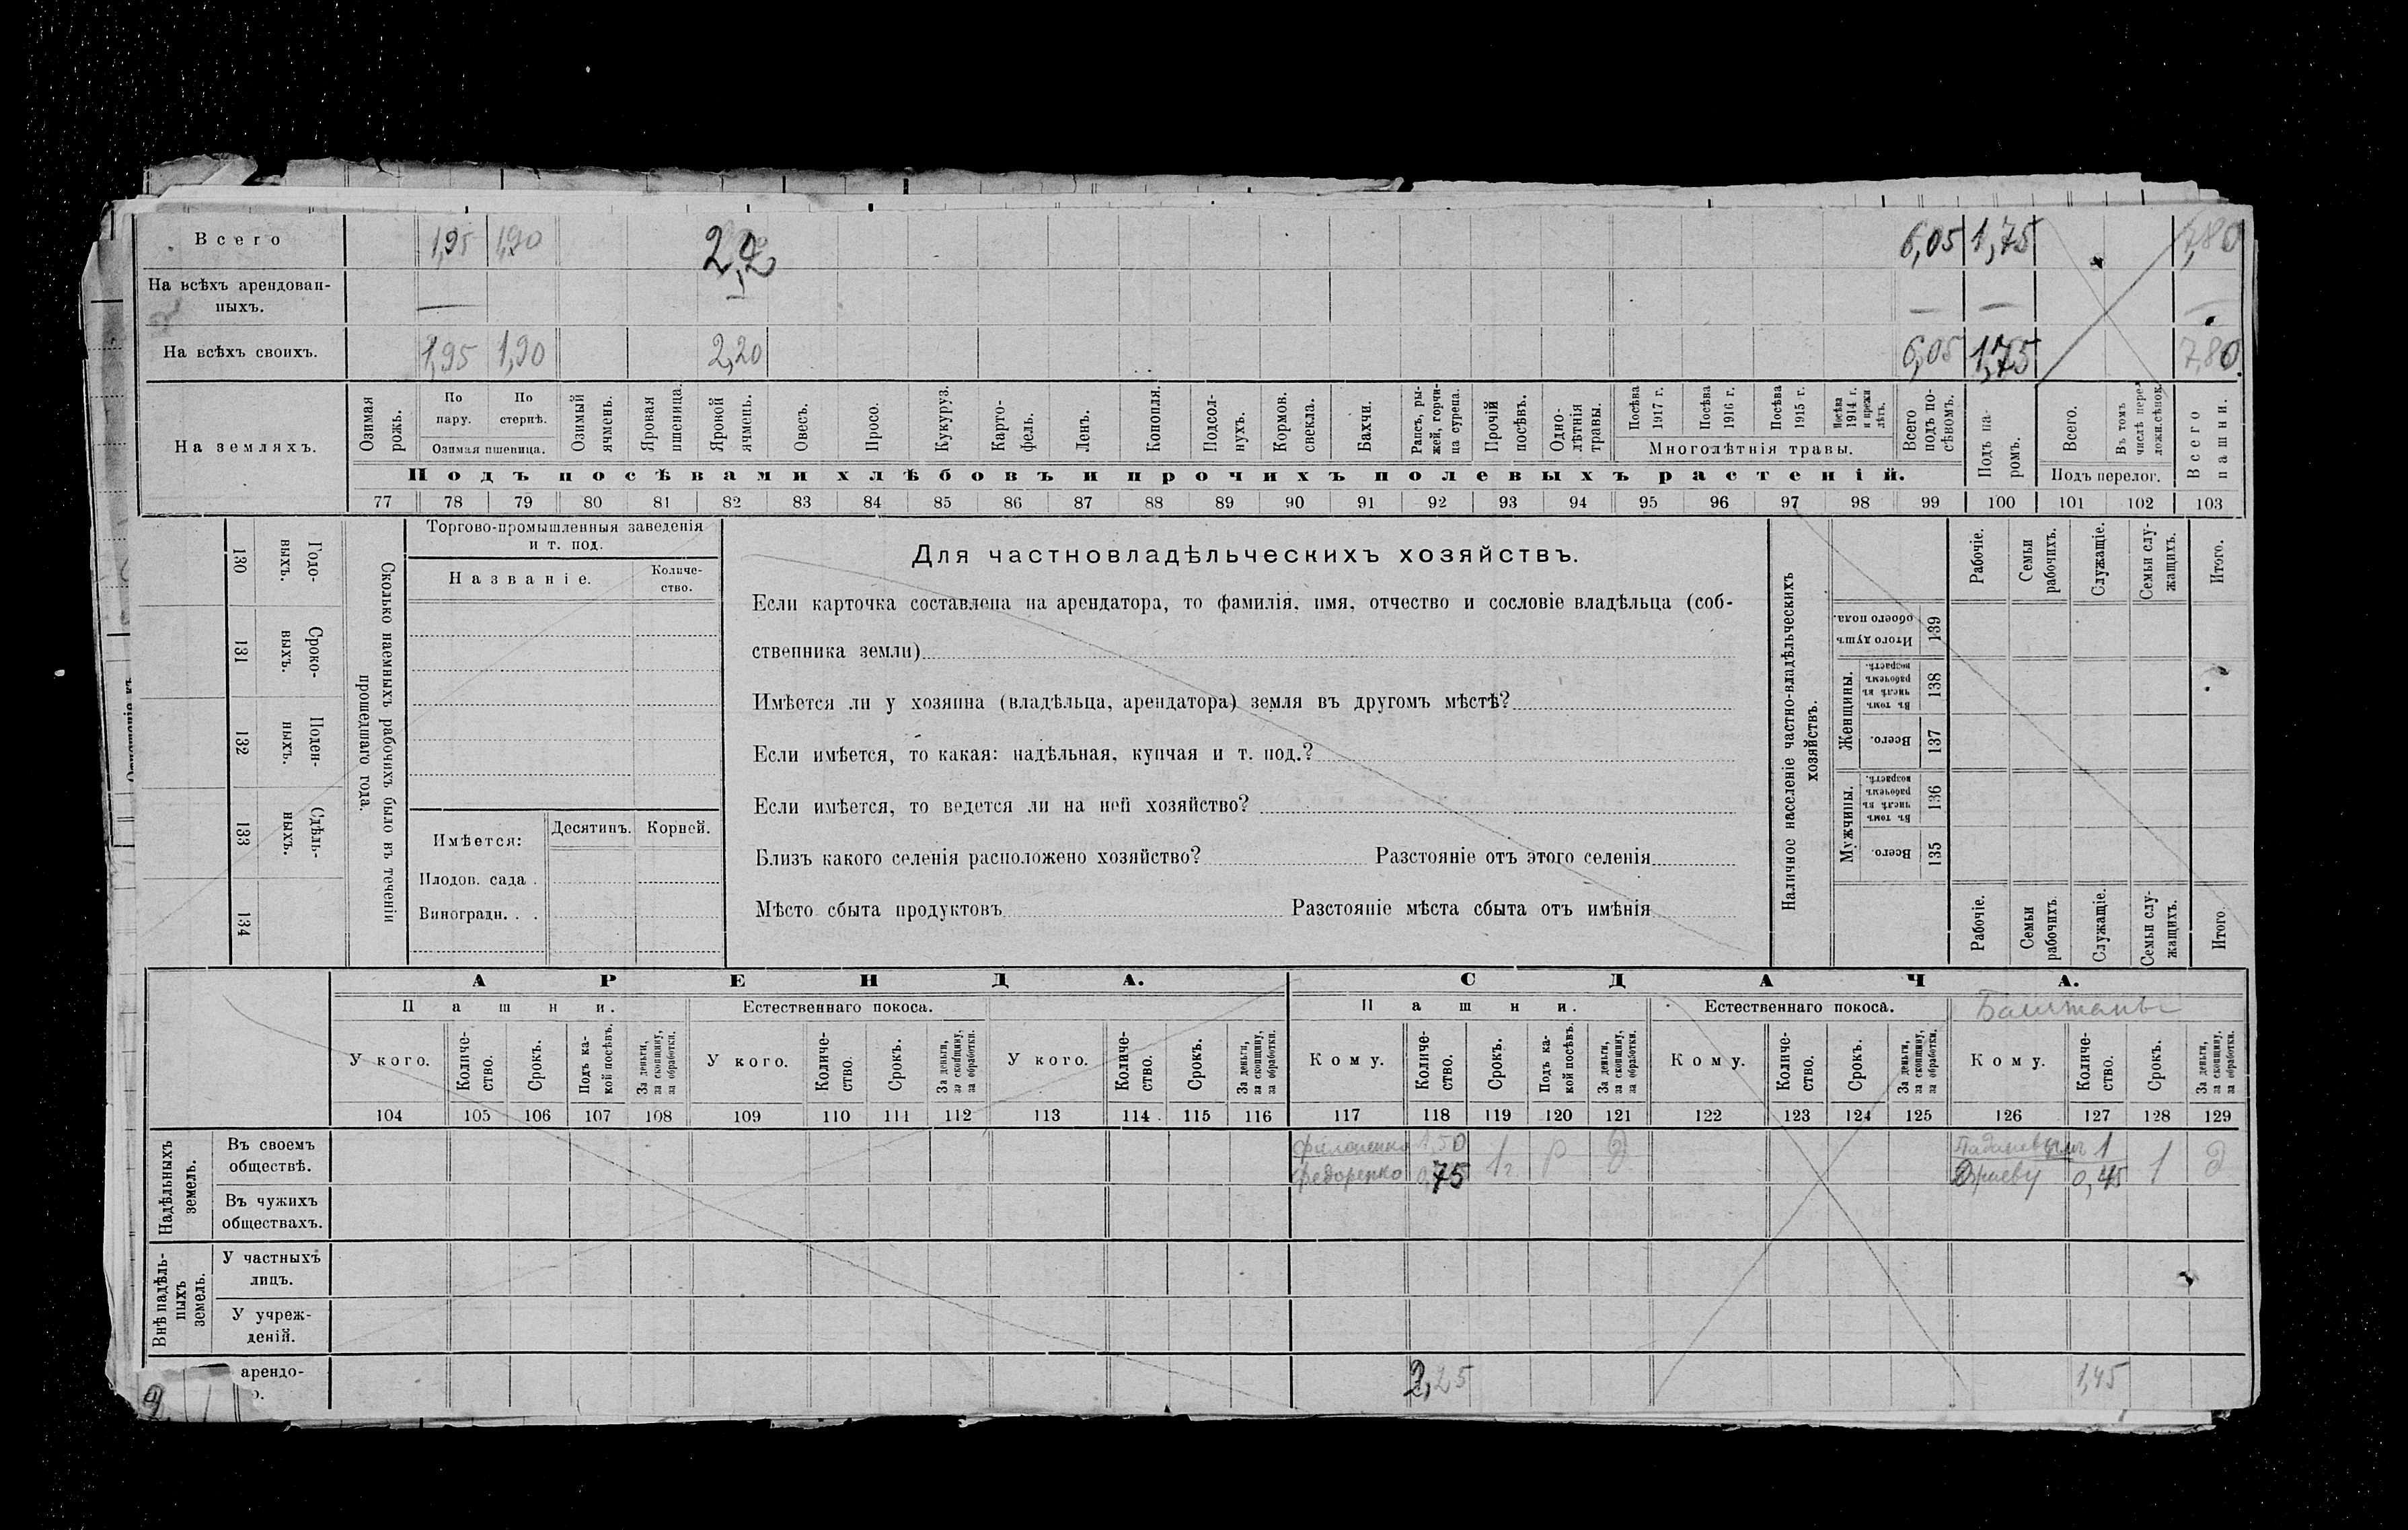 Всего 1,95 1,90 2,2 6,05 1,75 7,80
На всѣхъ арендован-
ныхъ. — — — —
На всѣхъ своихъ. 1,95 1,90 2,20 6,05 1,75 7,80
На земляхъ.
Озимая рожь.
По пару.
По стернѣ.
Озимая пшеница.
Озимый ячмень.
Яровая пшеница.
Яровой ячмень.
Овесъ.
Просо.
Кукуруз.
Карто-
фель.
Ленъ.
Конопля.
Подсол-
нухъ.
Кормов. свекла.
Бахчи.
Рапсъ, ры-
жей, горчи-
ца сурепа.
Прочій посѣвъ.
Одно-
лѣтнія травы.
Посѣва 1917 г.
Посѣва 1916 г.
Посѣва 1915 г.
Посѣва 1914 г. и прежн лѣтъ.
Многолѣтнія травы.
Всего подъ по-
сѣвомъ.
Подъ па-
ромъ.
Всего.
Въ томъ числѣ
Подъ перелог.
Всего пашни.
Подъ посѣвами хлѣбовъ и прочихъ полевыхъ растеній.
77 78 79 80 81 82 83 84 85 86 87 88 89 90 91 92 93 94 95 96 97 98 99 100 101 102 103
130 Годо-
выхъ.
131 Сроко-
выхъ.
132 Поден-
ныхъ.
133 Сдѣль-
ныхъ.
134
Сколько наемныхъ рабочихъ было въ теченіи
прошедшаго года.
Торгово-промышленныя заведенія
и т. под.
Названіе.
Количе-
ство.
Имѣется:
Десятинъ.
Корней.
Плодов. сада .
Виноградн. . .
Для частновладѣльческихъ хозяйствъ.
Если карточка составлена на арендатора, то фамилія, имя, отчество и сословіе владѣльца (соб-
ственника земли)
Имѣется ли у хозяина (владѣльца, арендатора) земля въ другомъ мѣстѣ?
Если имѣется, то какая: надѣльная, купчая и т. под.?
Если имѣется, то ведется ли на ней хозяйство?
Близъ какого селенія расположено хозяйство? Разстояніе отъ этого селенія
Мѣсто сбыта продуктовъ Разстояніе мѣста сбыта отъ имѣнія
Наличное населеніе частно-владѣльческихъ
хозяйствъ.
Рабочіе.
Семьи рабочихъ.
Служащіе.
Семьи слу-
жащихъ.
Итого.
Итого душъ обоего пола. 139
Женщины.
Въ томъ числѣ въ рабочемъ возрастѣ. 138
Всего. 137
Мужчины.
Въ томъ числѣ въ рабочемъ возрастѣ. 136
Всего. 135
Рабочіе.
Семьи рабочихъ.
Служащіе.
Семьи слу-
жащихъ.
Итого.
АРЕНДА.
СДАЧА.
Пашни.
Естественнаго покоса.
Пашни.
Естественнаго покоса.
У кого.
Количе-
ство.
Срокъ.
Подъ ка-
кой посѣвъ.
За деньги,
за скопщину,
за обработки.
У кого.
Количе-
ство.
Срокъ.
За деньги,
за скопщину,
за обработки.
У кого.
Количе-
ство.
Срокъ.
За деньги,
за скопщину,
за обработки.
Кому.
Количе-
ство.
Срокъ.
Подъ ка-
кой посѣвъ.
За деньги,
за скопщину,
за обработки.
Кому.
Количе-
ство.
Срокъ.
За деньги,
за скопщину,
за обработки.
Кому.
Количе-
ство.
Срокъ.
За деньги,
за скопщину,
за обработки.
104 105 106 107 108 109 110 111 112 113 114 115 116 117 118 119 120 121 122 123 124 125 126 127 128 129
Надѣльныхъ
земель.
Въ своемъ
обществѣ.
1,50 1
Федоренко 0,75 1 г. р д 0,45 1 д
Въ чужихъ
обществахъ.
Внѣ надѣль-
ныхъ
земель.
У частныхъ
лицъ.
У учреж-
деній.
арендо-
2,25 1,45